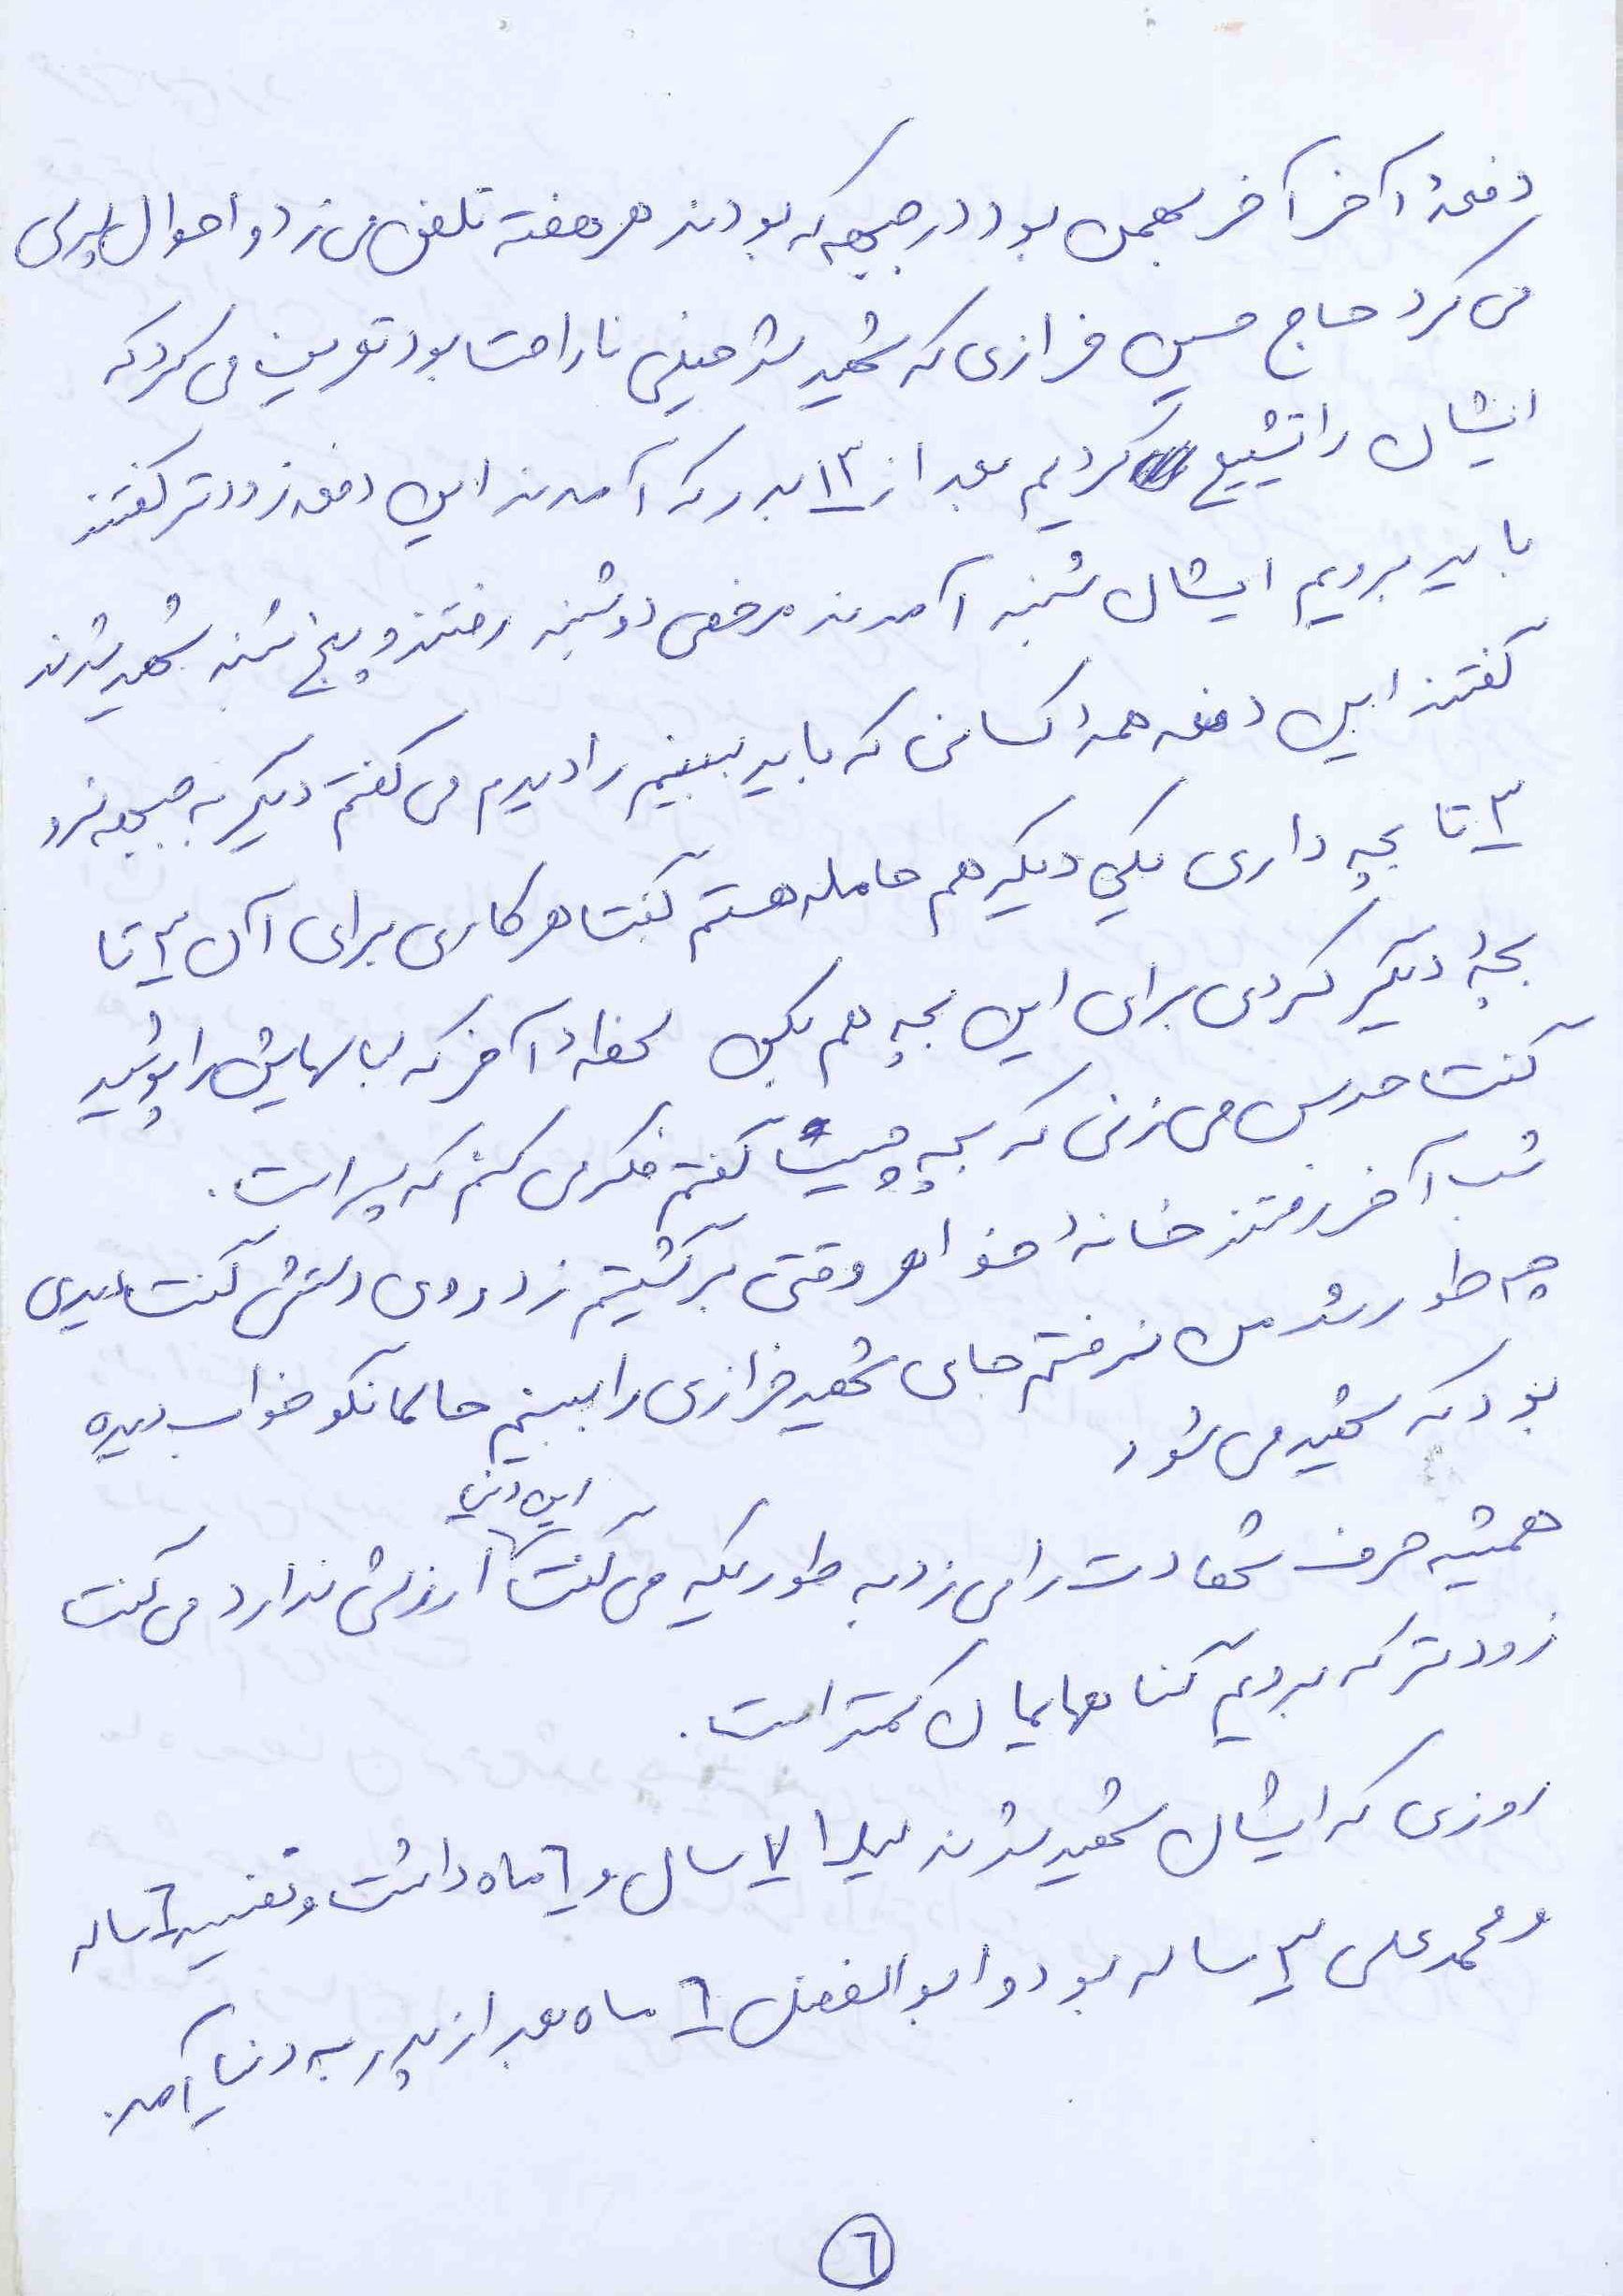 دفعهٔ آخر آخر بهمن بود در جبهه که بودند هر هفته تلفن می زد و احوال پرسی
می کرد حاج حسین خرازی که شهید شد خیلی ناراحت بود تعریف می کرد که
ایشان را تشییع کردیم بعد از ۱۳ بدر که آمدند این دفعه زودتر گفتند
باید برویم ایشان شنبه آمدند مرخصی دوشنبه رفتند و پنج شنبه شهید شدند
گفتند این دفعه همهٔ کسانی که باید ببینم را دیدم می گفتم دیگر به جبهه نرو
۳ تا بچه داری یکی دیگر هم حامله هستم گفت هر کاری برای آن ۳ تا
بچهٔ دیگر کردی برای این بچه هم بکن لحظهٔ آخر که لباسهایش را پوشید
گفت حدس می زنی که بچه چیست گفتم فکر می کنم که پسر است.
شب آخر رفتند خانهٔ خواهر وقتی برگشتیم زد روی دستش گفت دیدی
چه طور شد من نرفتم جای شهید خرازی را ببینم حالا نگو خواب دیده
بود که شهید می شود
همیشه حرف شهادت را می زد به طوریکه می گفت این دنیا ارزش ندارد می گفت
زودتر که برویم گناهایمان کمتر است.
روزی که ایشان شهید شدند لیلا ۷ سال و ۶ ماه داشت و نفیسه ۶ ساله
و محمد علی ۳ ساله بود و ابوالفضل ۶ ماه بعد از پدر به دنیا آمد.
۶